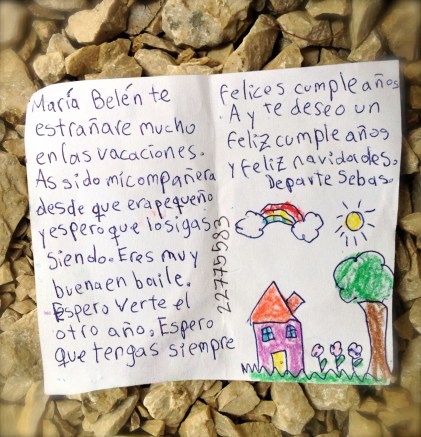 María Belén te
estrañare mucho
en las vacaciones.
As sido mi compañera
desde que era pequeño
y espero que lo sigas
siendo. Eres muy
buena en baile.
Espero verte el
otro año. Espero
que tengas siempre
felices cumpleaños
. A y te deseo un
feliz cumpleaños
y feliz navidades.
De parte Sebas.
22775583